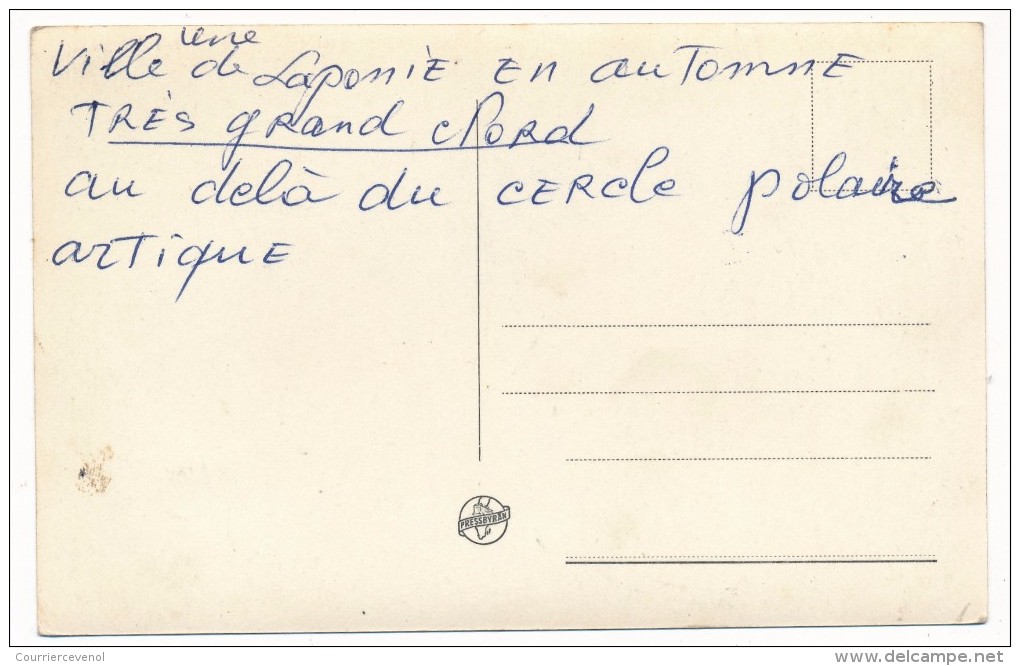 une
Ville de Laponie en automne
Très grand Nord
au delà du cercle polaire
artique
PRESSBYRÅN
Courriercevenol
delcampe.net